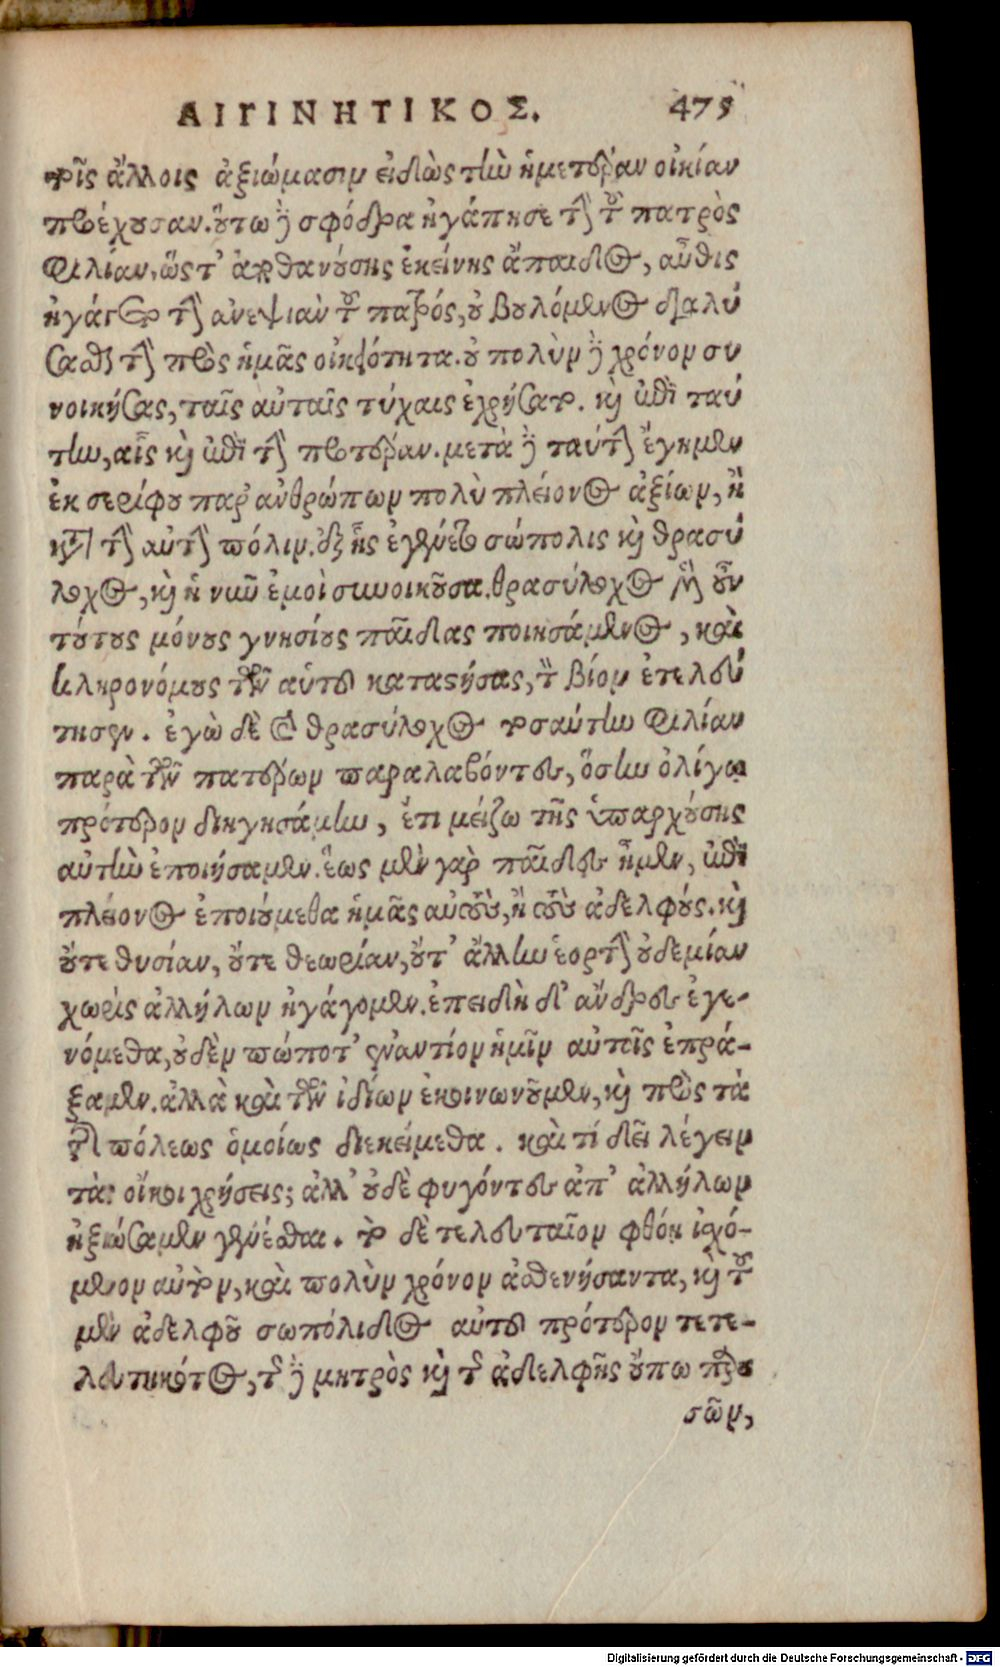 ΑΙΓΙΝΗΤΙΚΟΣ. 475
τοῖς ἄλλοις ἀξιώμασιν εἰδὼς τὴν ἡμετέραν οἰκίαν
προέχουσαν. οὕτω δὲ σφόδρα ἠγάπησε τὴν τοῦ πατρὸς
φιλίαν, ὥστ' ἀποθανούσης ἐκείνης ἄπαιδος, αὖθις
ἠγάγετο τὴν ἀνεψιὰν τοῦ πατρός, οὐ βουλόμενος διαλύ
σασθαι τὴν πρὸς ἡμᾶς οἰκειότητα. οὐ πολὺν δὲ χρόνον συ
νοικήσας, ταῖς αὐταῖς τύχαις ἐχρήσατο. καὶ ἐπὶ ταύ
την, αἷς καὶ ἐπὶ τὴν προτέραν. μετὰ δὲ ταύτην ἔγημεν
ἐκ σερίφου παρ' ἀνθρώπων πολὺ πλείονος ἀξίων, ἢ
κατὰ τὴν αὐτὴν πόλιν. ἐξ ἧς ἐγένετο σώπολις καὶ θρασύ
λοχος, καὶ ἡ νῦν ἐμοὶ συνοικοῦσα. θρασύλοχος μὲν οὖν
τούτους μόνους γνησίους παῖδας ποιησάμενος, καὶ
κληρονόμους τῶν αὑτοῦ καταστήσας, τὸν βίον ἐτελεύ
τησεν. ἐγὼ δὲ καὶ θρασύλοχος τοσαύτην φιλίαν
παρὰ τῶν πατέρων παραλαβόντες, ὅσην ὀλίγῳ
πρότερον διηγησάμην, ἔτι μείζω τῆς ὑπαρχούσης
αὐτὴν ἐποιήσαμεν. ἕως μὲν γὰρ παῖδες ἦμεν, ἐπὶ
πλέονος ἐποιούμεθα ἡμᾶς αὐτοὺς, ἢ τοὺς ἀδελφούς. καὶ
οὔτε θυσίαν, οὔτε θεωρίαν, οὔτ' ἄλλην ἑορτὴν οὐδεμίαν
χωρὶς ἀλλήλων ἠγάγομεν. ἐπειδὴ δ' ἄνδρες ἐγε-
νόμεθα, οὐδὲν πώποτ' ἐναντίον ἡμῖν αὐτοῖς ἐπρά-
ξαμεν. ἀλλὰ καὶ τῶν ἰδίων ἐκοινωνοῦμεν, καὶ πρὸς τὰ
τῆς πόλεως ὁμοίως διεκείμεθα. καὶ τί δεῖ λέγειν
τὰς οἴκοι χρήσεις; ἀλλ' οὐδὲ φυγόντες ἀπ' ἀλλήλων
ἠξιώσαμεν γενέσθαι. τὸ δὲ τελευταῖον φθόῃ ἰσχό-
μενον αὐτὸν, καὶ πολὺν χρόνον ἀσθενήσαντα, καὶ τοῦ
μὲν ἀδελφοῦ σωπόλιδος αὐτοῦ πρότερον τετε-
λευτηκότος, τῆς δὲ μητρὸς καὶ τῆς ἀδελφῆς οὔπω παρου
σῶν,
Digitalisierung gefördert durch die Deutsche Forschungsgemeinschaft - DFG